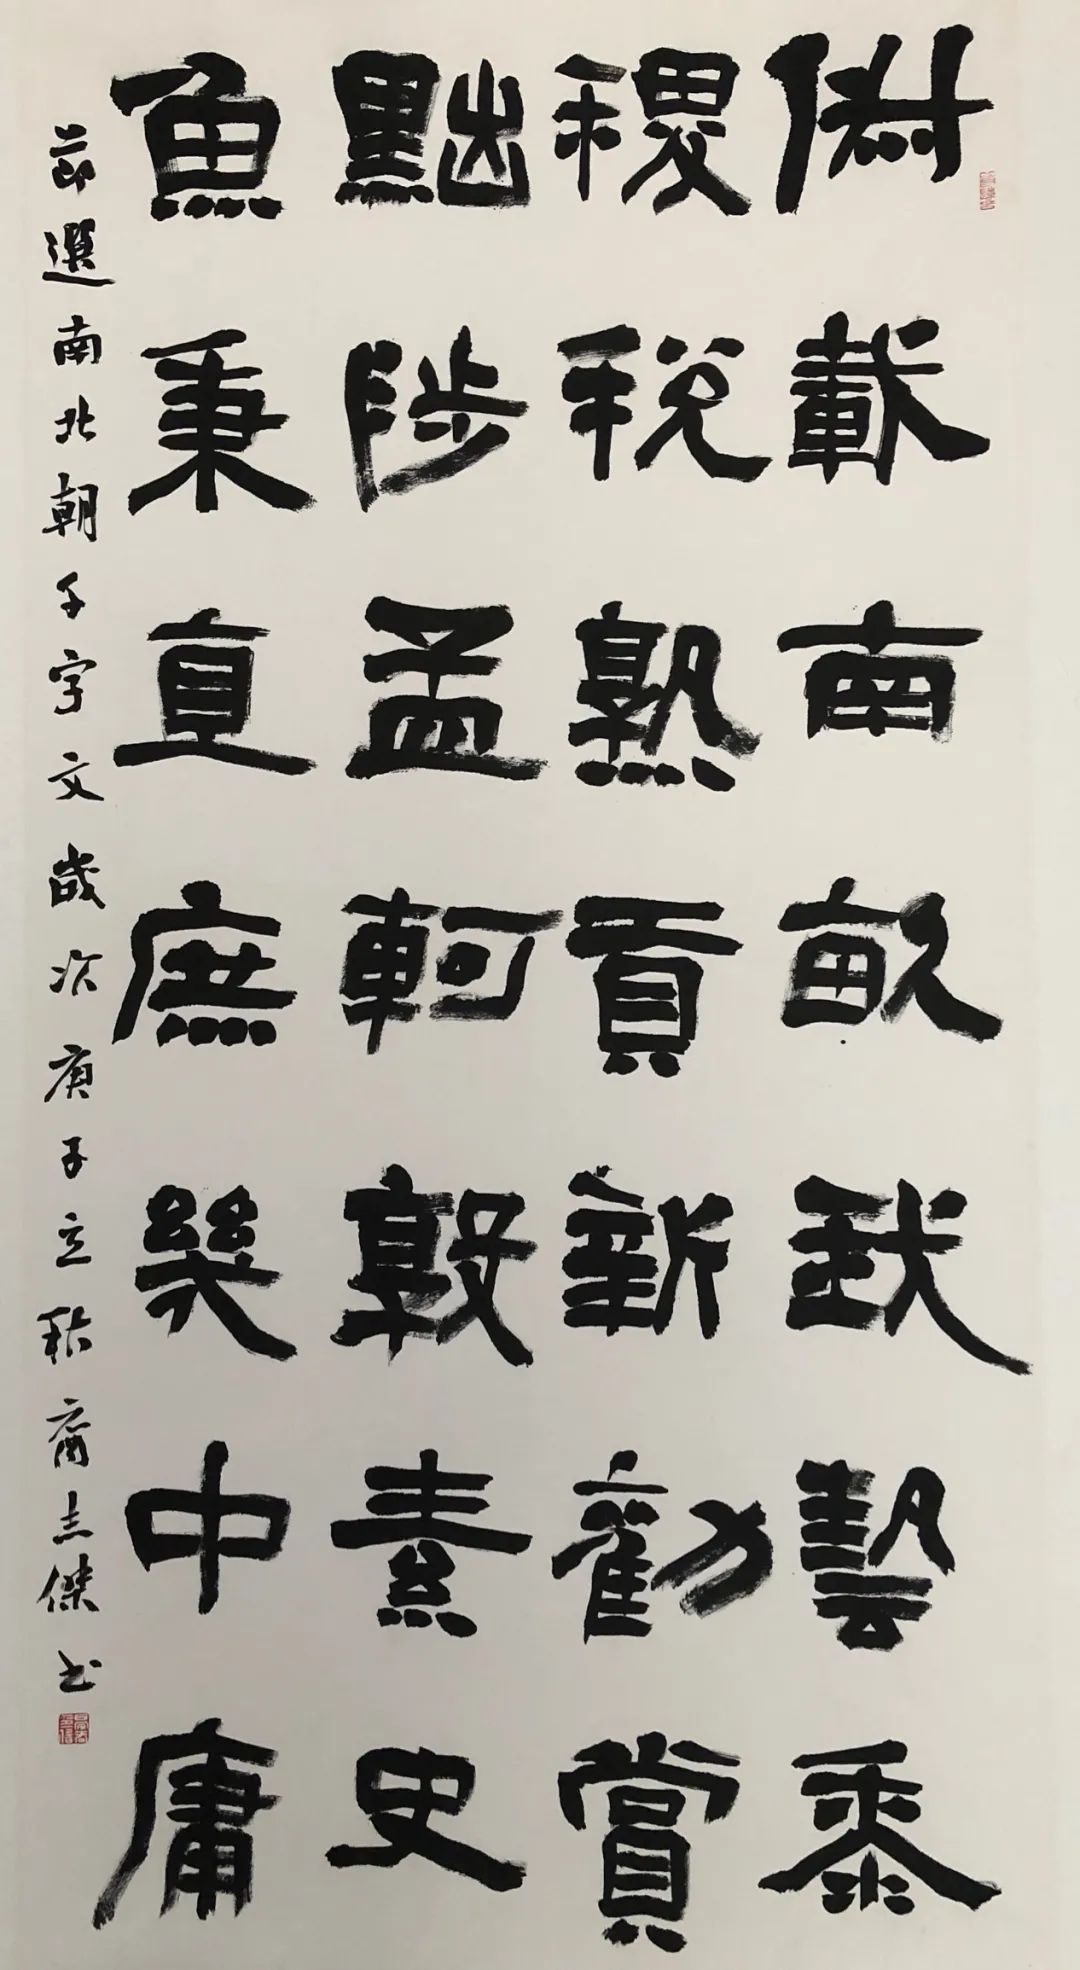 俶載南畝我藝黍
稷稅熟貢新勸賞
黜陟孟軻敦素史
魚秉直庶幾中庸
節選南北朝千字文歲次庚子立秋齋志傑书